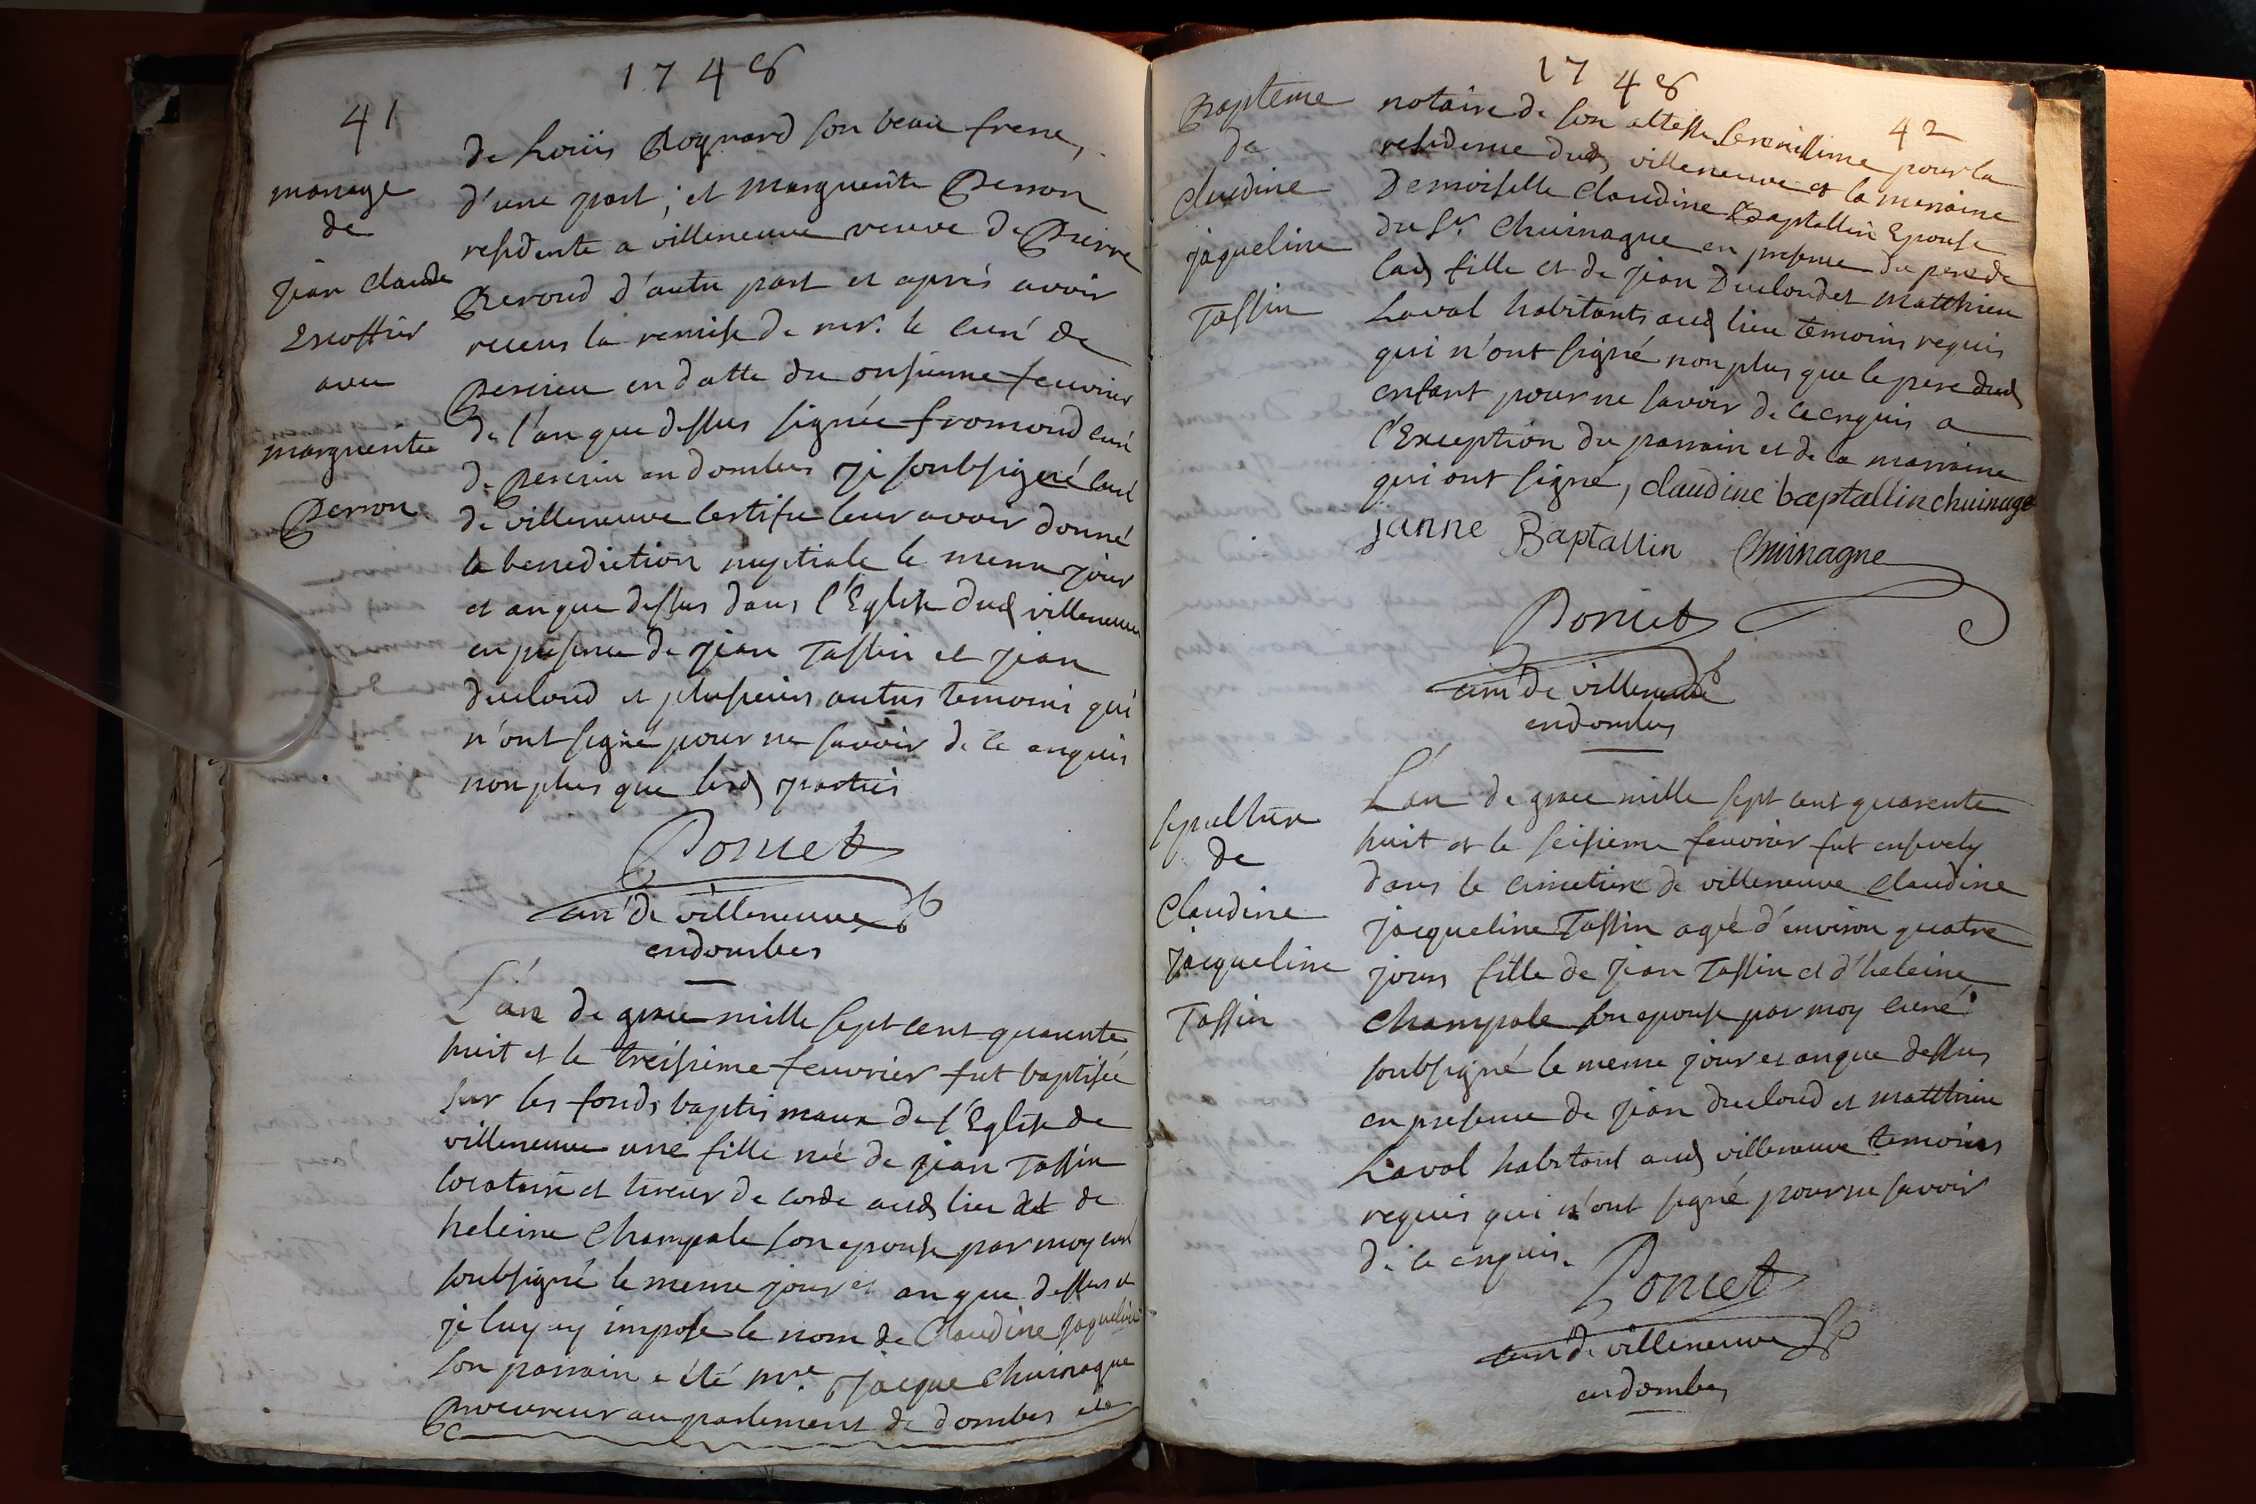 1748
41
mariage
de
jean claude
Escoffier
avec
marguerite
Perron
de Loüis Pognard son beau frere,
d'une part, et Marguerite Perron
residente a villeneuve veuve de Pierre
Peroud d'autre part et aprés avoir
receus la remise de mr. le curé de
Percieu en datte du onsieme feuvrier
de l'an que dessus signée fromond curé
de Percieu en dombes je soubsigné curé
de villeneuve certifie leur avoir donné
la benediction nuptiale le meme jour
et an que dessus dans l'Eglise dud villeneuve
en presence de jean Tassin et jean
ducloud et plusieurs autres temoins qui
n'ont signé pour ne savoir de ce enquis
non plus que lesd parties
Poncet
curé de villeneuve
en dombes
L'an de grace mille sept cent quarente
huit et le treisieme feuvrier fut baptisée
sur les fonds baptismaux de l'Eglise de
villeneuve une fille née de jean Tassin
locataire et tireur de corde aud lieu et de
heleine Champale son epouse par moy curé
soubsigné le meme jour et an que dessus et
je luy ay imposé le nom de Claudine Jaqueline
son parrain a été mre Jacque Chuinague
Procureur au parlement de dombes et
1748
42
Bapteme
de
claudine
jaqueline
Tassin
notaire de son altesse serenissime pour la
residence dud villeneuve et la marraine
Demoiselle Claudine Baptallin Epouse
du Sr. Chuinague en presence du pere de
lad fille et de jean Ducloud et Matthieu
Laval habitants aud lieu temoins requis
qui n'ont signé non plus que le pere dud
enfant pour ne savoir de ce enquis a
l'Exception du parrain et de la marraine
qui ont signé, claudine baptallin chuinague
janne Baptallin Chuinague
Poncet
curé de villeneuve
en dombes
sepulture
de
Claudine
jacqueline
Tassin
L'an de grace mille sept cent quarente
huit et le seisieme feuvrier fut ensevely
dans le cimetiere de villeneuve Claudine
jacqueline Tassin agée d'environ quatre
jours fille de jean Tassin et d'heleine
Champale son epouse par moy curé
soubsigné le meme jour et an que dessus
en presence de jean ducloud et matthieu
Laval habitant aud villeneuve temoins
requis qui n'ont signé pour ne savoir
de ce enquis.
Poncet
curé de villeneuve
en dombes